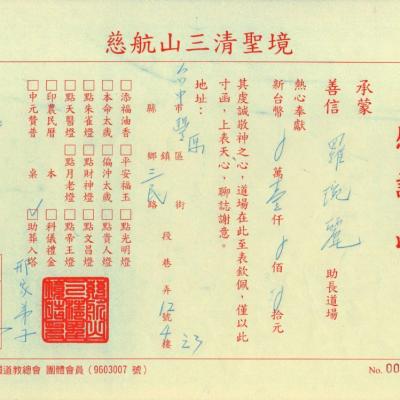 慈航山三清聖境
承蒙
善信 羅 麗 助長道場
熱心奉獻
新台幣 0 萬 壹 仟 0 佰 0 拾元
其虔誠敬神之心,道場在此至表欽佩,僅以此
寸函,上表天心,聊誌謝意。
地址:
台中 市 豐原 區 街
縣 鄉 三民 路 段 巷 弄 12 號 4 樓 之3
□添福油香 □平安福玉 □點光明燈
□本命太歲 □偏沖太歲 □點貴人燈
□點朱雀燈 □點財神燈 □點文昌燈
□點天醫燈 □點月老燈 □點帝王燈
□印農民曆 本 □科儀禮金
□中元贊普 桌 ✓□助葬入塔
道教總會 團體會員(9603007 號)
No. 00